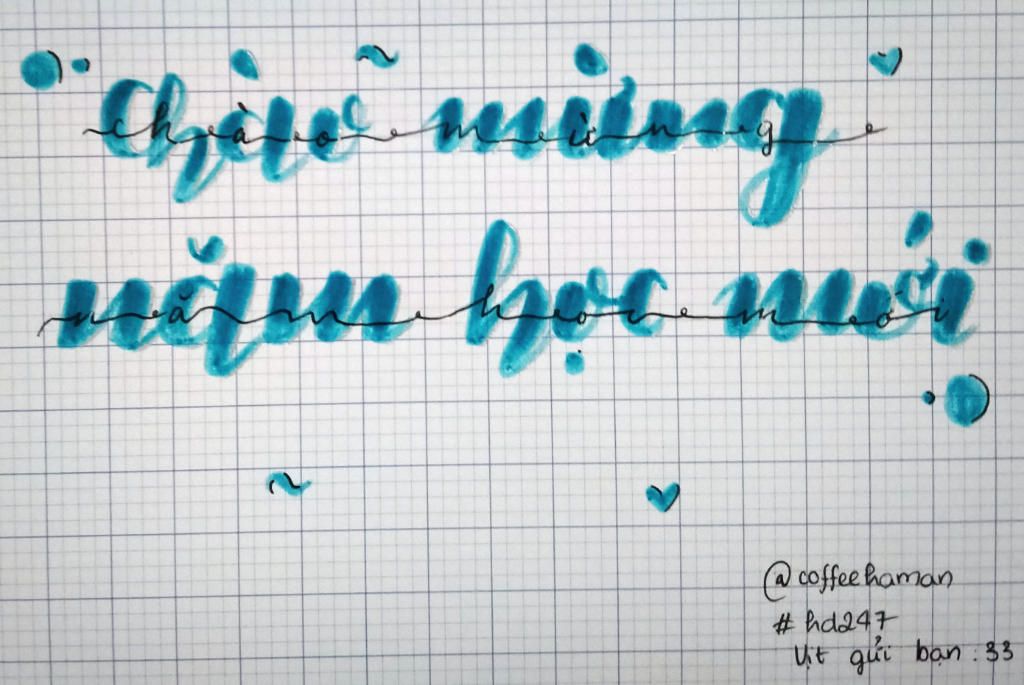 chào mừng
năm học mới
@coffeehaman
#hd247
Vịt gửi bạn :33